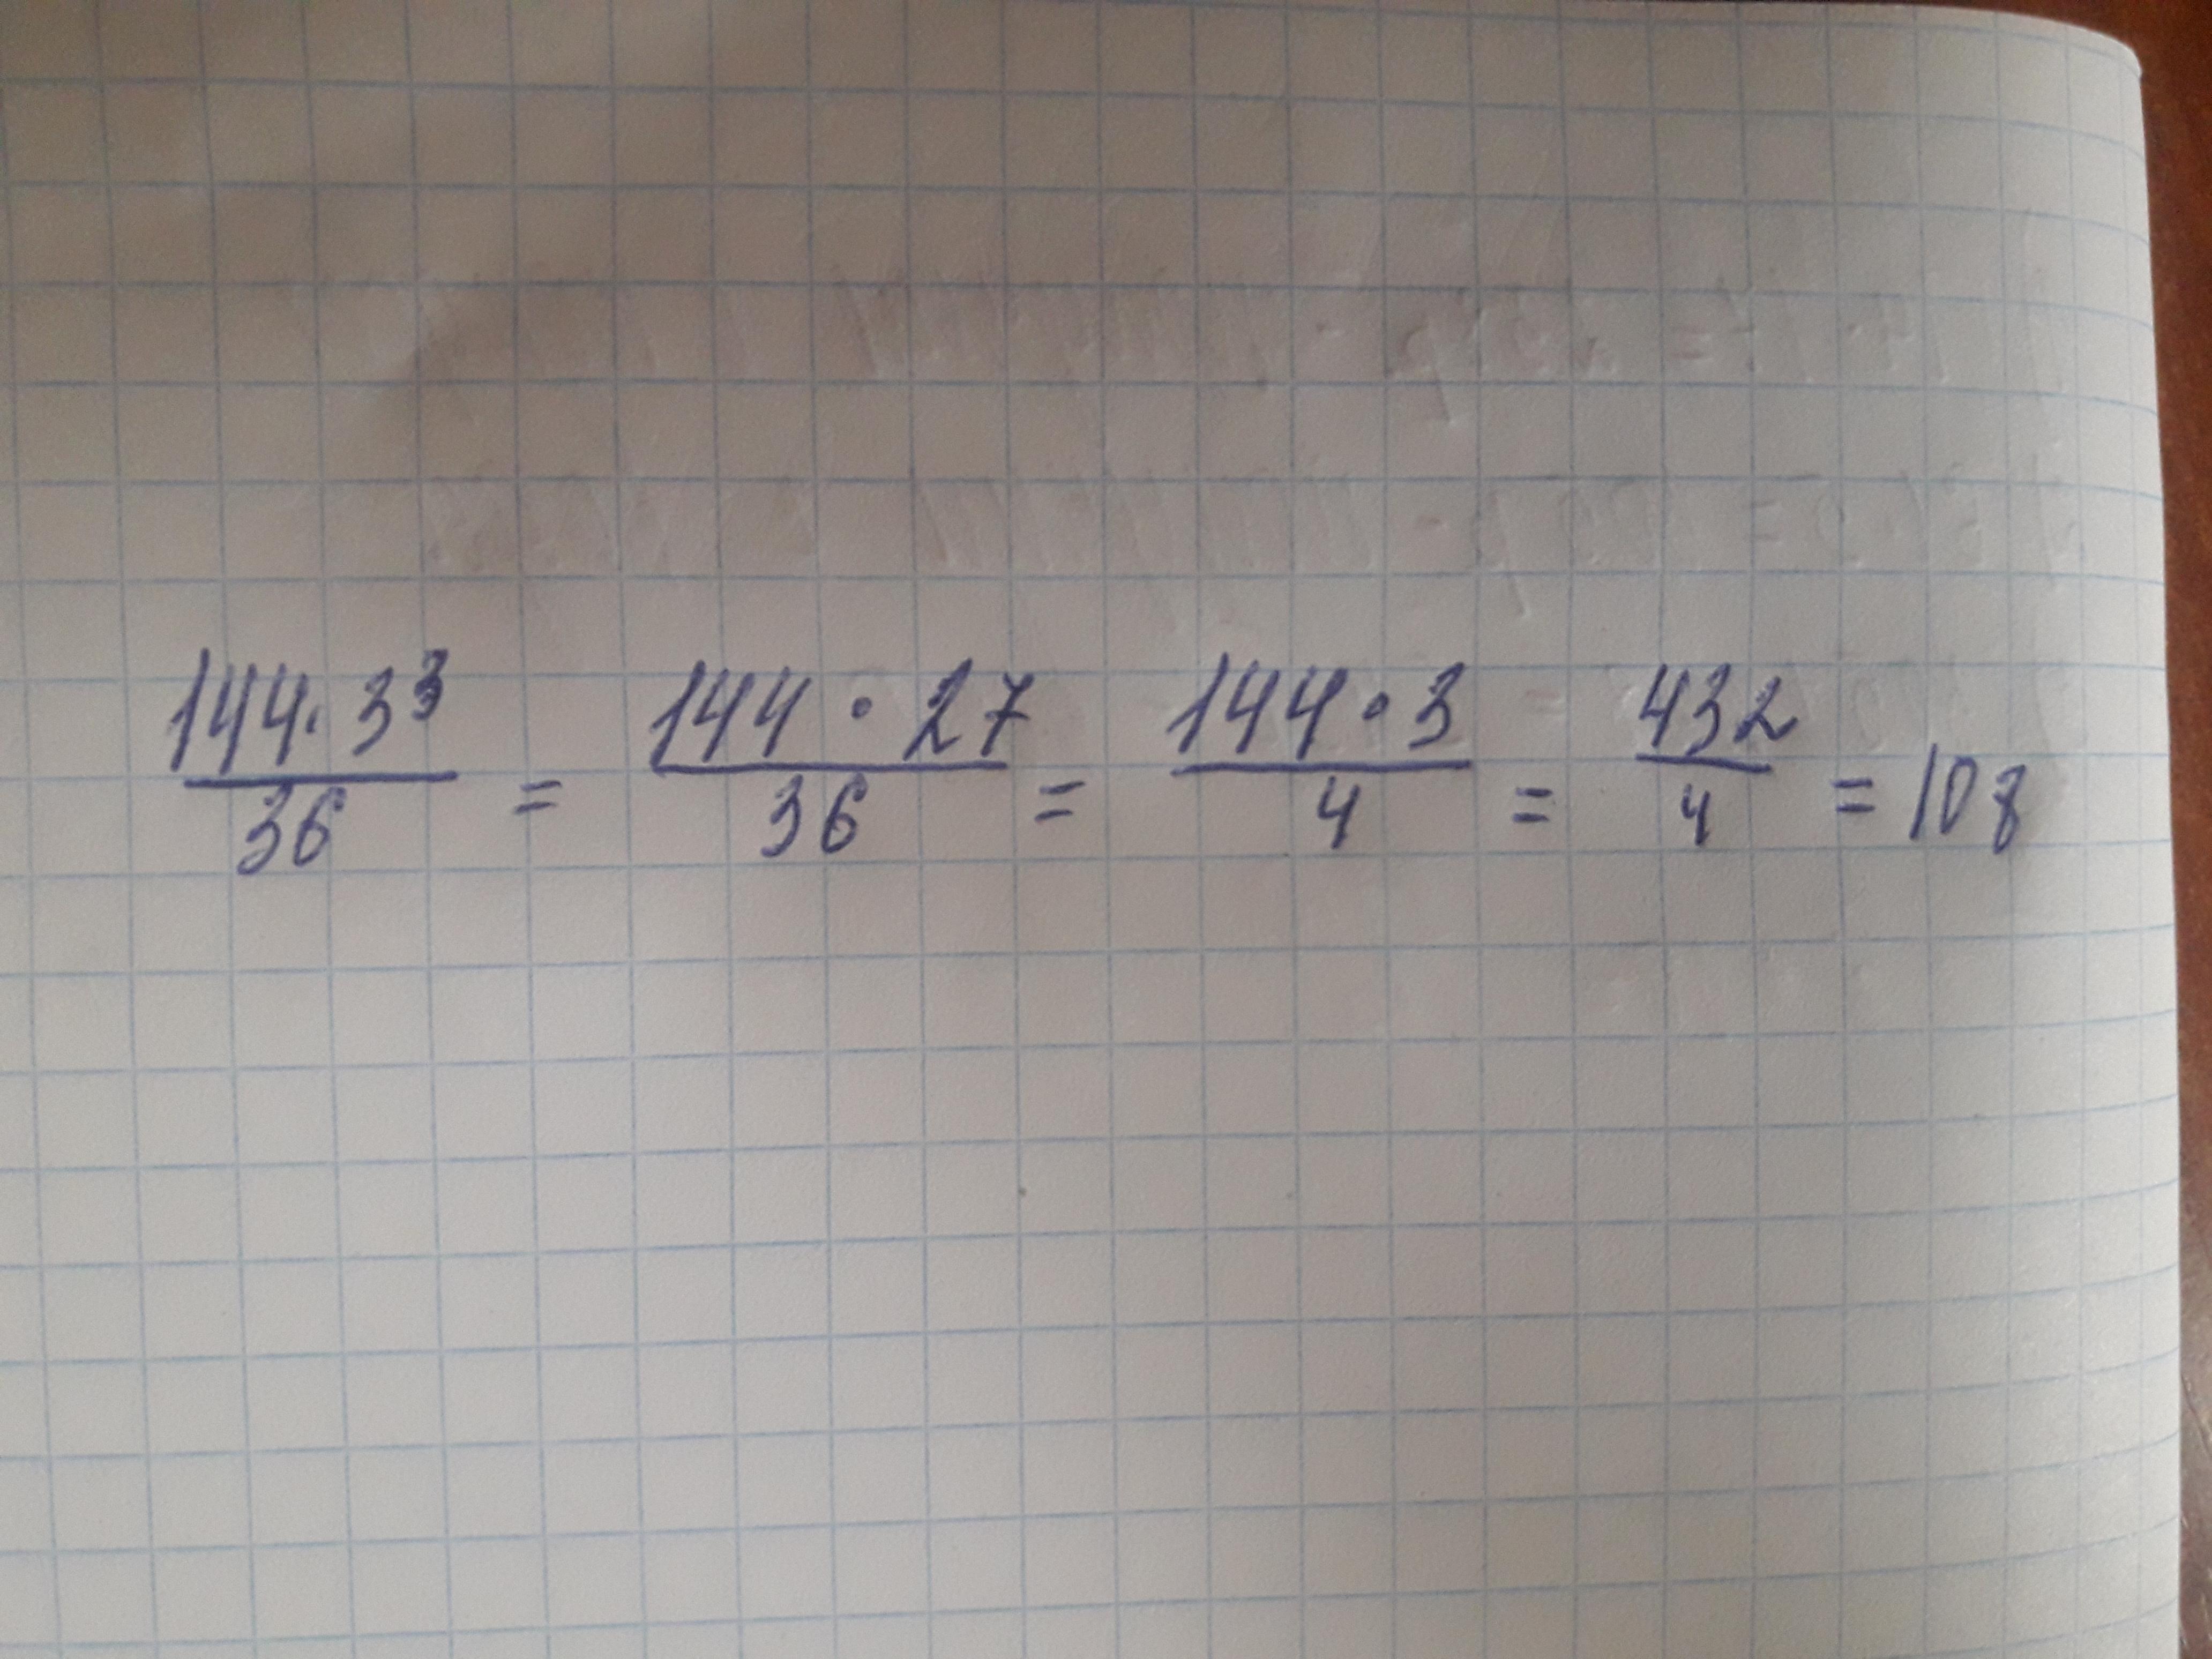 144·3³/36 = 144·27/36 = 144·3/4 = 432/4 = 108